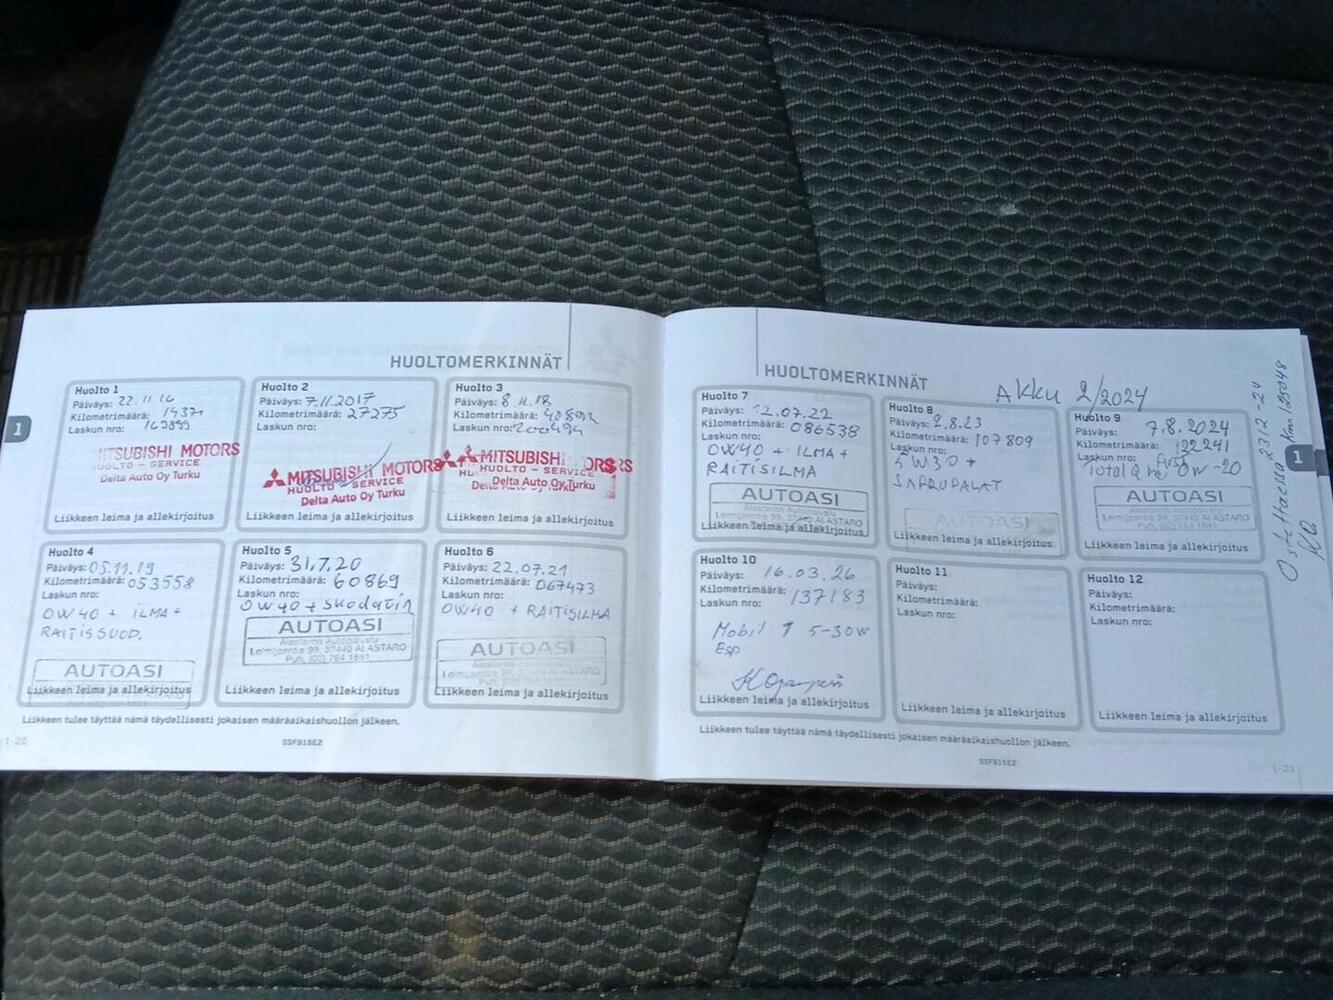 HUOLTOMERKINNÄT
Huolto 1
Päiväys: 22.11.16
Kilometrimäärä: 14371
Laskun nro: 163899
MITSUBISHI MOTORS
HUOLTO - SERVICE
Delta Auto Oy Turku
Liikkeen leima ja allekirjoitus
Huolto 2
Päiväys: 7.11.2017
Kilometrimäärä: 27275
Laskun nro:
MITSUBISHI MOTORS
HUOLTO - SERVICE
Delta Auto Oy Turku
Liikkeen leima ja allekirjoitus
Huolto 3
Päiväys: 8.11.18
Kilometrimäärä: 40892
Laskun nro: 200494
MITSUBISHI MOTORS
HUOLTO - SERVICE
Delta Auto Oy Turku
Liikkeen leima ja allekirjoitus
Huolto 4
Päiväys: 05.11.19
Kilometrimäärä: 053558
Laskun nro:
0W40 + ILMA+
RAITISSUOD.
AUTOASI
Liikkeen leima ja allekirjoitus
Huolto 5
Päiväys: 31.7.20
Kilometrimäärä: 60869
Laskun nro:
0W40 +
AUTOASI
Alastaron Autopalvelu
Loimijoentie 99, 32440 ALASTARO
Puh. (02) 764 1681
Liikkeen leima ja allekirjoitus
Huolto 6
Päiväys: 22.07.21
Kilometrimäärä: 067473
Laskun nro:
0W40 + RAITISILMA
AUTOASI
Alastaron Autopalvelu
Loimijoentie 99, 32440 ALASTARO
Liikkeen leima ja allekirjoitus
Liikkeen tulee täyttää nämä täydellisesti jokaisen määräaikaishuollon jälkeen.
1-20
SSF915E2
1
HUOLTOMERKINNÄT
AKKU 2/2024
Huolto 7
Päiväys: 12.07.22
Kilometrimäärä: 086538
Laskun nro:
0W40 + ILMA+
RAITISILMA
AUTOASI
Alastaron Autopalvelu
Loimijoentie 99, 32440 ALASTARO
Liikkeen leima ja allekirjoitus
Huolto 8
Päiväys: 2.8.23
Kilometrimäärä: 107809
Laskun nro:
5W30 +
JARRUPALAT
AUTOASI
Liikkeen leima ja allekirjoitus
Huolto 9
Päiväys: 7.8.2024
Kilometrimäärä: 122241
Laskun nro:
Total 0w-20
AUTOASI
Alastaron Autopalvelu
Loimijoentie 99, 32440 ALASTARO
Liikkeen leima ja allekirjoitus
Huolto 10
Päiväys: 16.03.26
Kilometrimäärä: 137183
Laskun nro:
Mobil 1 5-30W
Esp
Liikkeen leima ja allekirjoitus
Huolto 11
Päiväys:
Kilometrimäärä:
Laskun nro:
Liikkeen leima ja allekirjoitus
Huolto 12
Päiväys:
Kilometrimäärä:
Laskun nro:
Liikkeen leima ja allekirjoitus
Liikkeen tulee täyttää nämä täydellisesti jokaisen määräaikaishuollon jälkeen.
SSF915E2
1-21
1
Ostettaessa 23.12-24 Km 125048